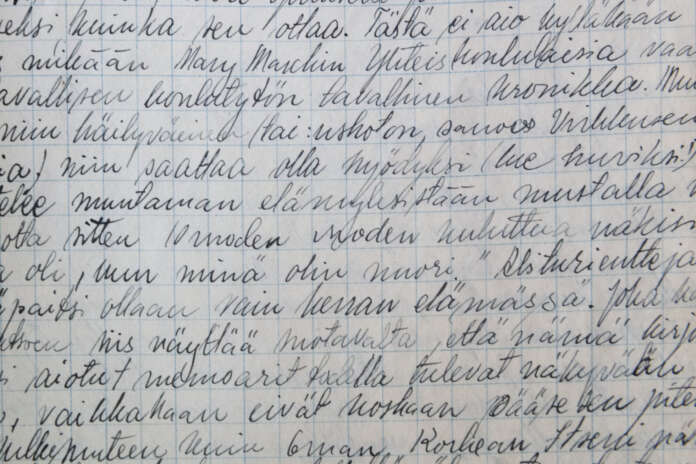 eksi kuinka sen ottaa. Tästä ei aio kylläkään
mikään Mary Marckin Yhteiskoululaisia vaa
avallisen koulutytön tavallinen kronikka. Mut
niin häilyväinen (tai: uskoton, sanoo Virkkusen
ia) niin saattaa olla hyödyksi (lue huviksi!)
telee muutaman elämyksistään mustalla
otta sitten 10 vuoden kuluttua näkisi
a oli, kun minä olin nuori." Abiturientteja
päitsi ollaan vain kerran elämässä. Joka
siis näyttää että nämä kirjo
i aiotut memoarit todella tulevat näkyvään
, vaikkakaan eivät koskaan pääse sen pite
julkisuuteen kuin Oman, Korkean Itseni